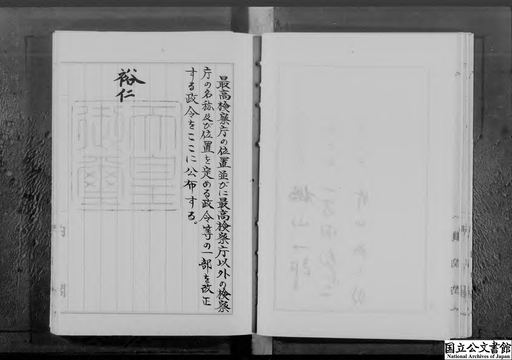 最高検察庁の位置並びに最高検察庁以外の検察
庁の名称及び位置を定める政令等の一部を改正
する政令をここに公布する。
裕仁
天皇
御璽
国立公文書館
National Archives of Japan